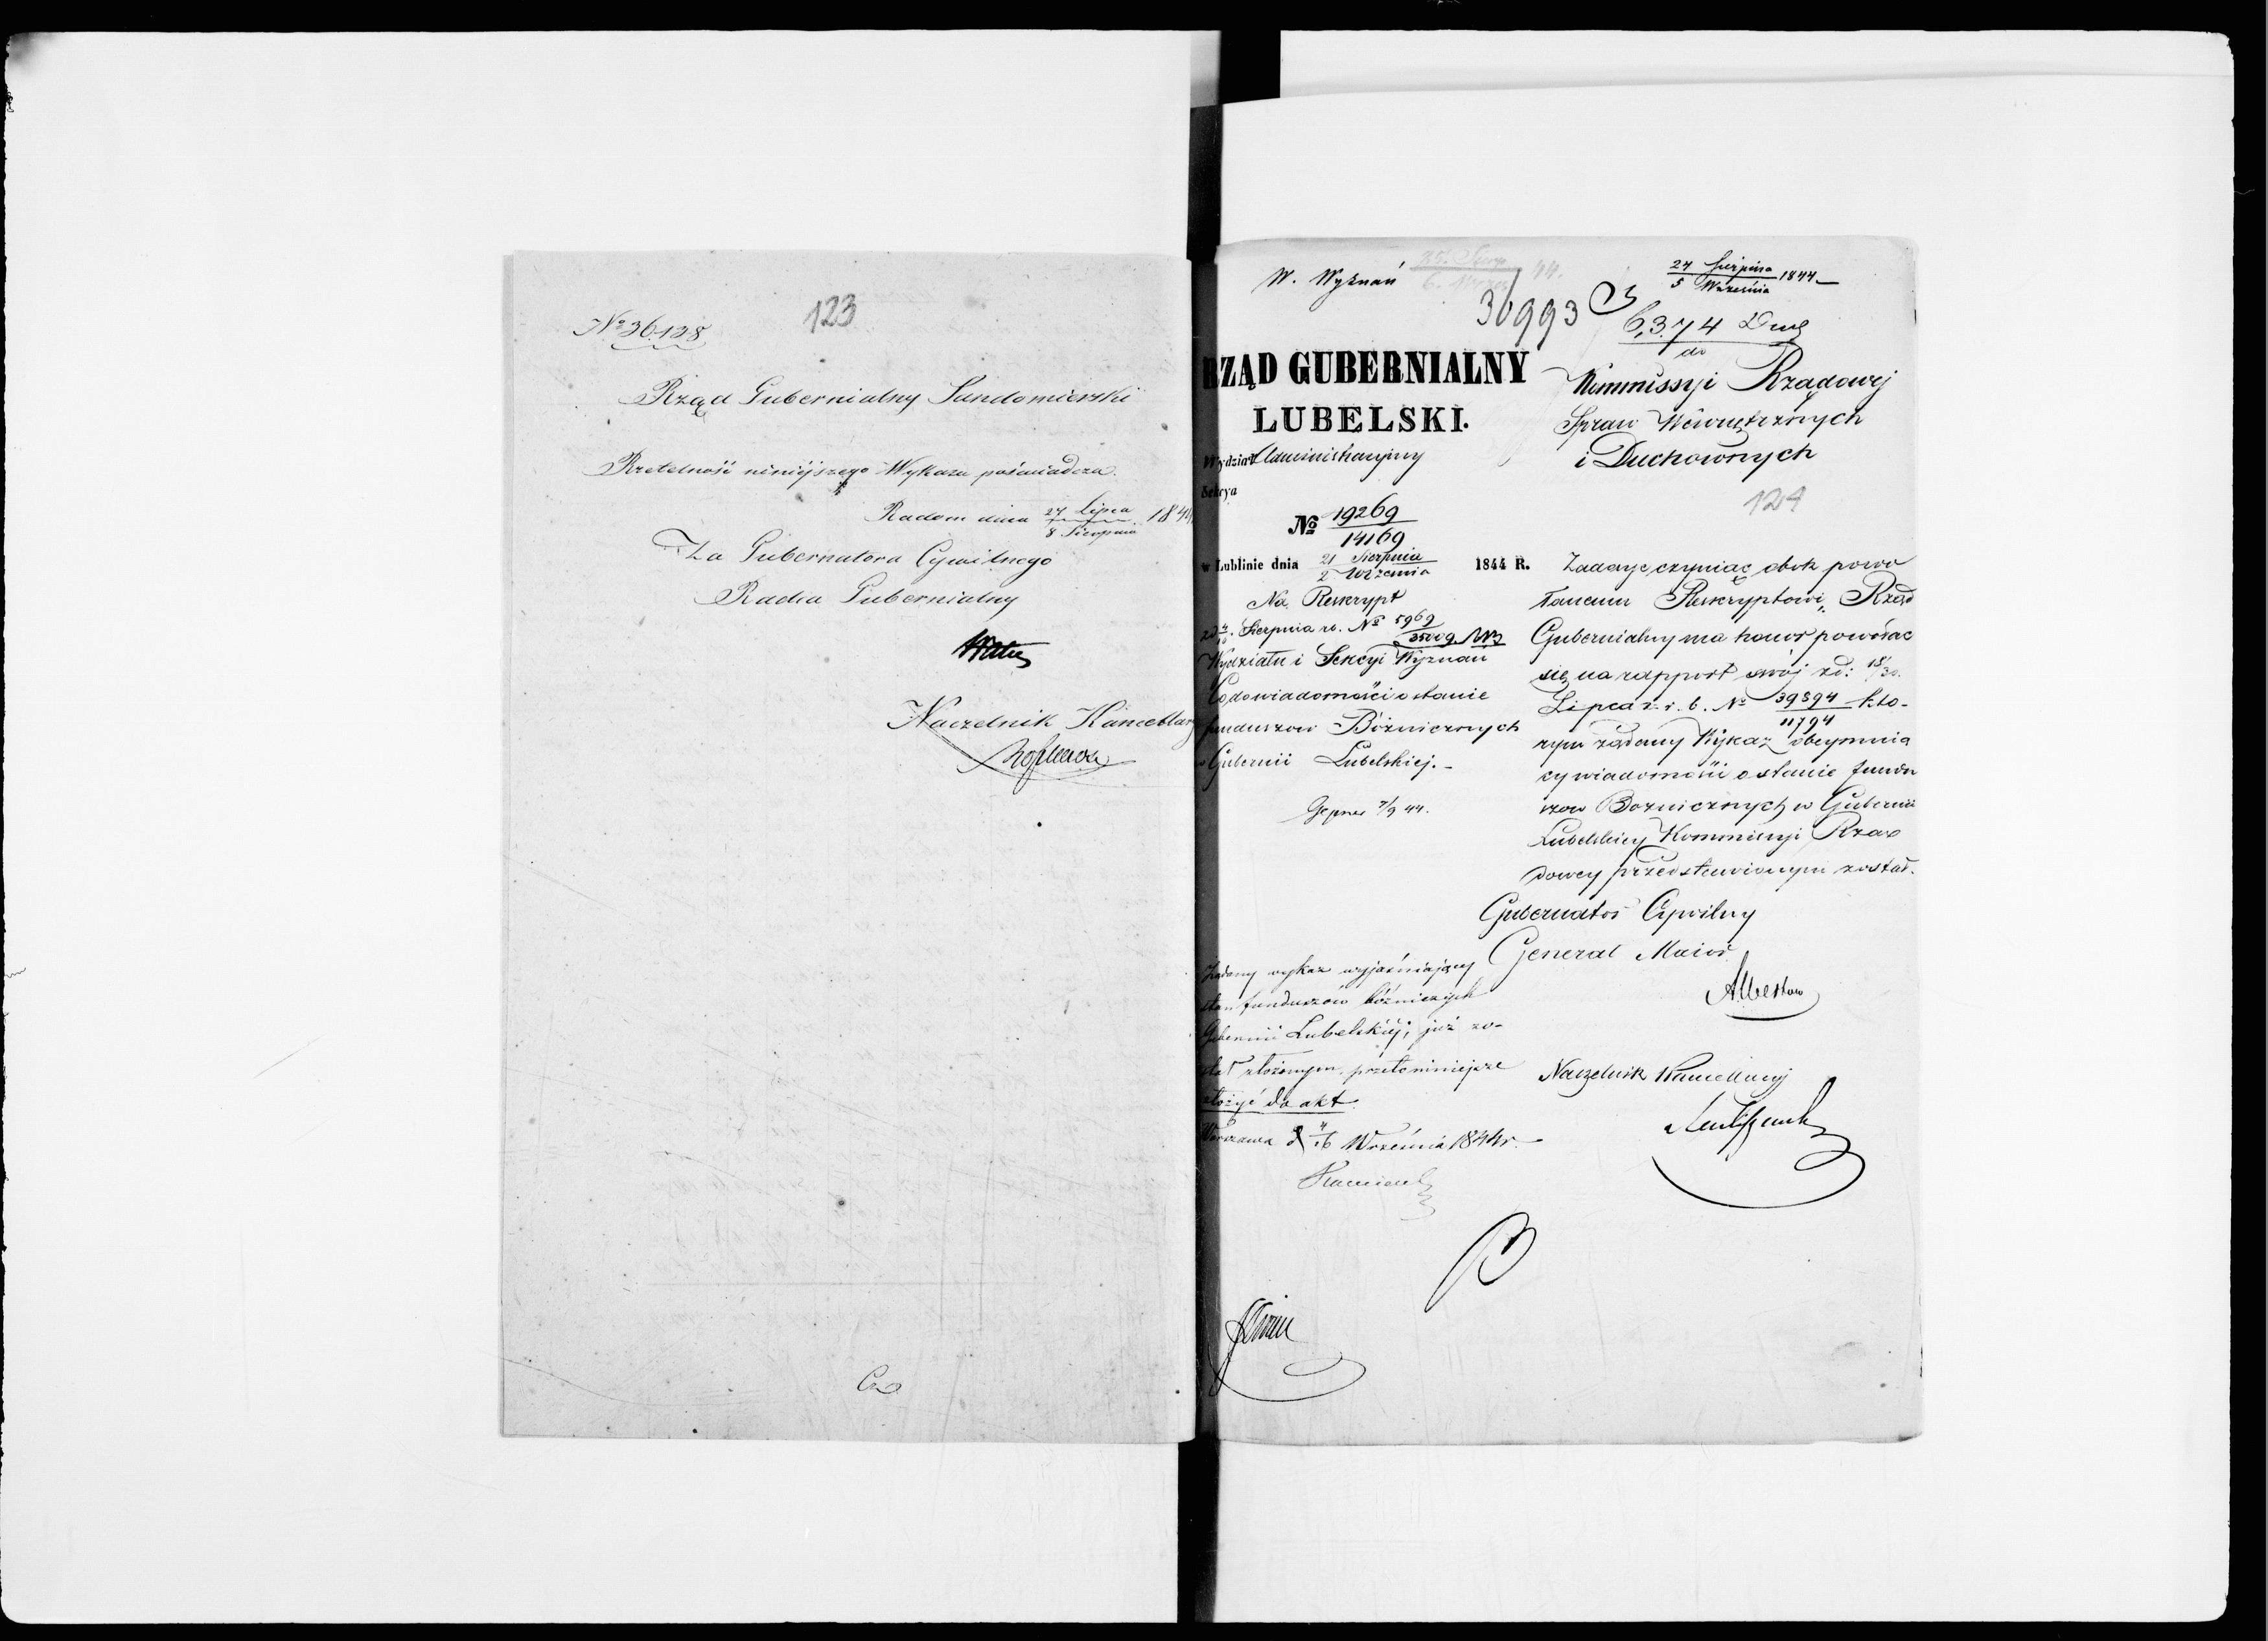 123
№ 36.128
Rząd Gubernialny Sandomierski
Rzetelność niniejszego Wykazu poświadcza.
Radom dnia 27 Lipca / 8 Sierpnia 1844
Za Gubernatora Cywilnego
Radca Gubernialny
Naczelnik Kancellary
W. Wyznań
24 Sierpnia / 5 Września 1844
30993
6374
do
Kommissyi Rządowej
Spraw Wewnętrznych
i Duchownych
124
RZĄD GUBERNIALNY
LUBELSKI.
Wydział Administracyjny
Sekcya
№ 19269 / 14169
w Lublinie dnia 21 Sierpnia / 2 Września 1844 R.
Na Reskrypt
zd 4/16 Sierpnia rb. № 5969 / 35009
Wydziału i Sekcyi Wyznań
Co do wiadomości o stanie
funduszow Bóżnicznych
w Gubernii Lubelskiej.
Gepner 7/9 44.
Zadosyć czyniąc obok powo
łanemu Reskryptowi, Rząd
Gubernialny ma honor powołac
się na rapport swój zd: 18/30
Lipca r. b. № 39894 / 11794 któ-
rym żądany Wykaz obeymuią
cy wiadomości o stanie fundu
szow Boznicznych w Gubernii
Lubelskiey Kommissyi Rzą
dowey przedstawionym został.
Gubernator Cywilny
Generał Maior
Albertow
Naczelnik Kancellaryi
Żądany wykaz wyjaśniający
stan funduszów bóżniczych
Gubernii Lubelskiéj, już zo-
stał złożonym, przeto niniejsze
złożyć do akt.
Warszawa d 4/16 Września 1844 r.